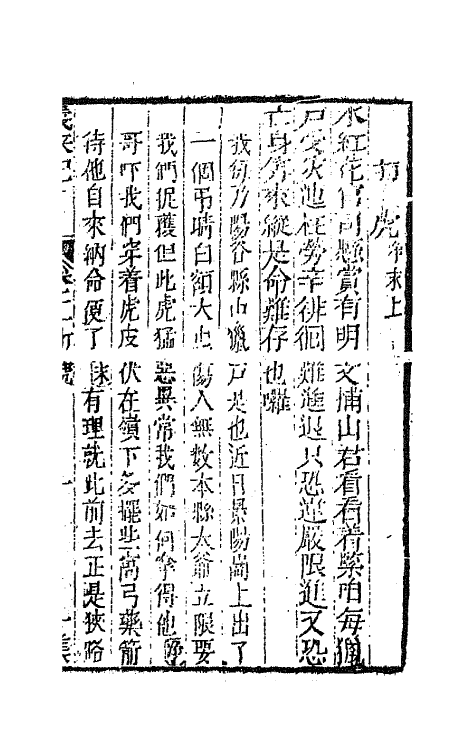 打虎 淨末上
水紅花官司懸賞有明文捕山君看看着緊咱每獵
戶受災迍枉勞辛徘徊難進退只恐違嚴限進又恐
亡身算來縱是命難存也囉
我們乃陽谷縣中獵戶是也近日景陽崗上出了
一個弔睛白額大虫傷人無數本縣太爺立限要
我們捉獲但此虎猛惡異常我們如何拿得他
哥吓我們穿着虎皮伏在嶺下多擺些窩弓藥箭
待他自來納命便了末有理就此前去正是狹路
義俠記 虎 一 集